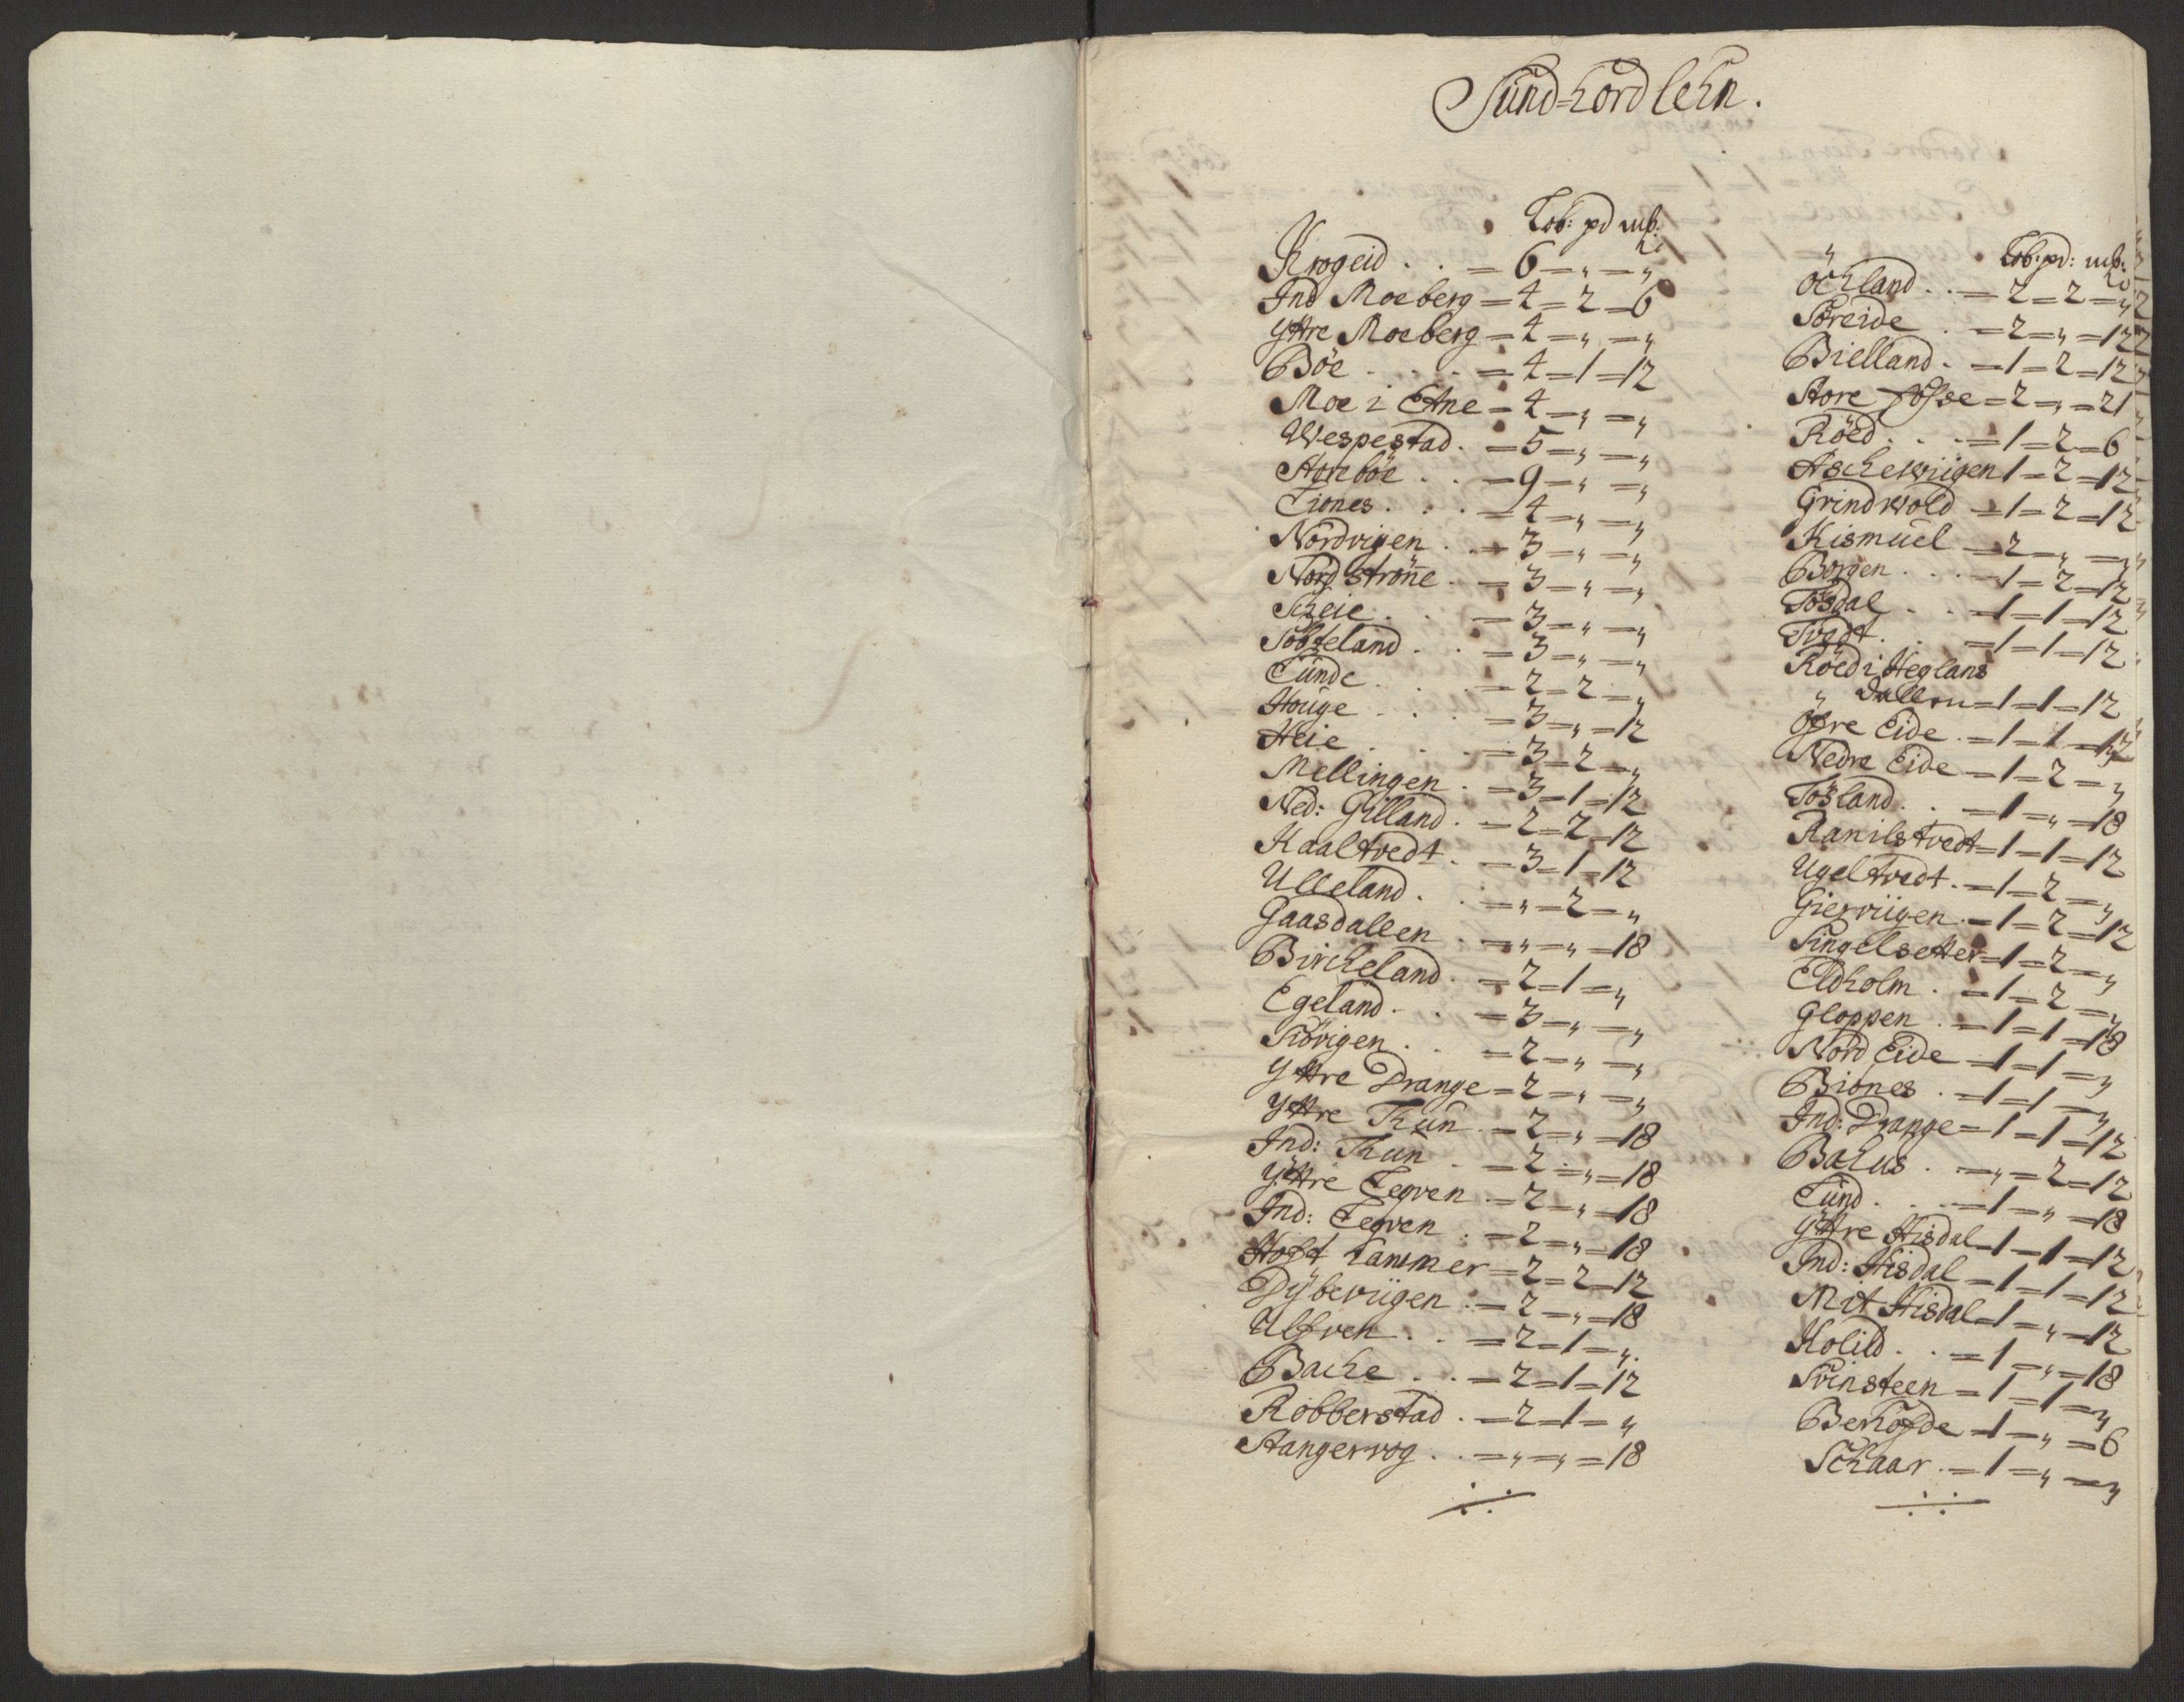 Sünd-hordlehn.
Lob: pd mb:
Krogeid . . = 6 = „ = „
Ind Moeberg = 4 = 2 = 6
Yttre Moeberg = 4 = „ = „
Böe . . . . = 4 = 1 = 12
Moe i Etne = 4 = „ = „
Wespestad . = 5 = „ = „
Storeböe . . = 9 = „ = „
Tiones . . . = 4 = „ = „
Nordvigen . . = 3 = „ = „
Nordströne . = 3 = „ = „
Scheie . . = 3 = „ = „
Söfteland . . = 3 = „ = „
Lunde . . . = 2 = 2 = „
Houge . . . = 3 = „ = 12
Heie . . . = 3 = 2 = „
Mellingen . = 3 = 1 = 12
Ned: Gilland . = 2 = 2 = 12
Kaaltvedt . = 3 = 1 = 12
Ulleland . . = „ = 2 = „
Gaasdallen . = „ = „ = 18
Bircheland . = 2 = 1 = „
Egeland . . = 3 = „ = „
Siövigen . . = 2 = „ = „
Yttre Drange = 2 = „ = „
Yttre Thun . = 2 = „ = 18
Ind: Thun . = 2 = „ = 18
Yttre Tegven . = 2 = „ = 18
Ind: Tegven . = 2 = „ = 18
Hoft hammer = 2 = 2 = 12
Dybeviigen . = 2 = „ = 18
Ulfven . . = 2 = 1 = „
Bache . . . = 2 = 1 = 12
Robberstad . = 2 = 1 = „
Stangervog . . = „ = „ = 18
„ Lob: pd: mb:
Öchland . . = 2 = 2 = „
Söreide . = 2 = „ = 12
Bielland . = 1 = 2 = 12
Store Fosse = 2 = „ = 21
Röed . . . = 1 = 2 = 6
Ascheviigen 1 = 2 = 12
Grindwold = 1 = 2 = 12
Kismuel = 2 = „ = „
Borgen . . . = 1 = 2 = 12
Tösdal . . = 1 = 1 = 12
Tvedt . . = 1 = 1 = 12
Röed i Heglans
„ dallen = 1 = 1 = 12
Öfre Eide . = 1 = 1 = 12
Nedre Eide = 1 = 2 = „
Tösland . . = 1 = „ = 18
Ranilstvedt = 1 = 1 = 12
Ugeltvedt . = 1 = 2 = „
Gierviigen . = 1 = 2 = 12
Singelsetter = 1 = 2 = „
Eldholm . = 1 = 2 = „
Gloppen . = 1 = 1 = 18
Nord Eide = 1 = 1 = „
Biones . = 1 = 1 = „
Ind: Drange = 1 = 1 = 12
Bahus . = „ = 2 = 12
Lund . . . = 1 = „ = 18
Yttre Hisdal = 1 = 1 = 12
Ind: Hisdal = 1 = 1 = 12
Mit Hisdal = 1 = „ = 12
Kolild . . = 1 = „ = 18
Svinsteen = 1 = 1 = „
Berhofde = 1 = „ = 6
Schaar . = 1 = „ = „